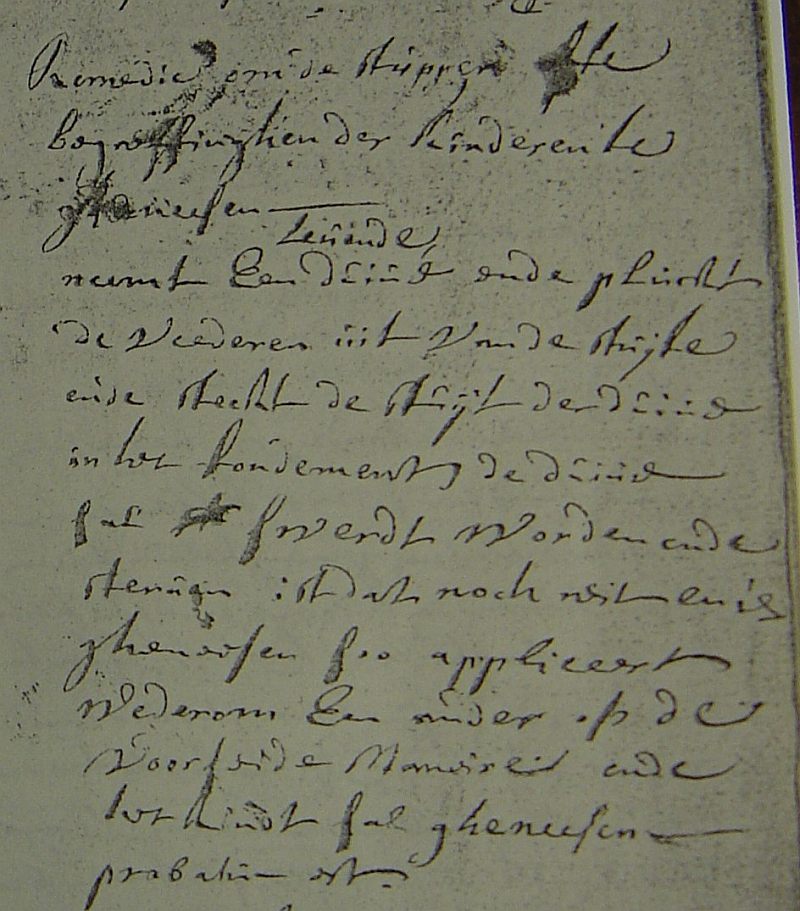 Remedie om de stuppen ofte
begroffinghen der kinderen te
gheneesen
levende
neemt Een duive ende pluckt
de Veederen uit van de stuijte
ende steckt de stuijt der duive
in het fondement, de duive
sal swerdt worden ende
sterven ist dat noch niet en is
ghenesen soo appliceert
wederom Een ander op de
Voorseide Maniere ende
het kindt sal gheneesen
probatum est.